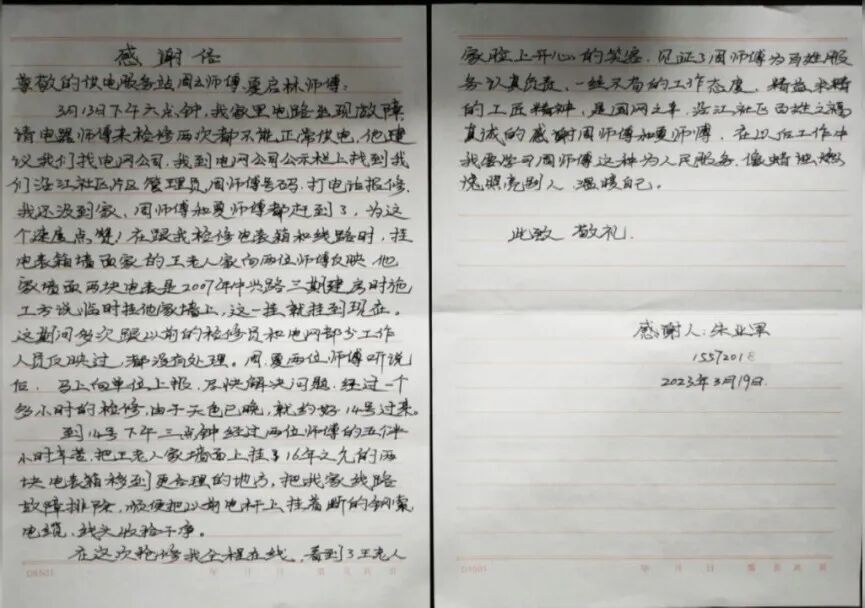 感谢信
尊敬的供电服务站周立师傅、夏启林师傅：
3月13日下午六点钟，我家里电路出现故障，
请电器师傅来检修两次都不能正常供电，他建
议我们找电网公司，我到电网公司公示栏上找到我
们沿江社区片区管理员周师傅号码，打电话报修，
我还没到家、周师傅和夏师傅都赶到了，为这
个速度点赞！在跟我检修电表箱和线路时，挂
电表箱墙面家的王老人家向两位师傅反映，他
家墙面两块电表是2007年中兴路三期建房时施
工方说临时挂他家墙上，这一挂就挂到现在。
这期间多次跟以前的检修员和电网部分工作
人员反映过，都没有处理。周、夏两位师傅听说
后，马上向单位上报，尽快解决问题，经过一个
多小时的检修，由于天色已晚，就约好14号过来。
到14号下午三点钟经过两位师傅的五个半
小时辛苦，把王老人家墙面上挂了16年之久的两
块电表箱移到更合理的地方，把我家线路
故障排除，顺便把以前电杆上挂着断的钢索
电缆，线头收拾干净。
在这次抢修我全程在线，看到了王老人
家脸上开心的笑容，见证了周师傅为百姓服
务认真负责、一丝不苟的工作态度，精益求精
的工匠精神，是国网之幸，沿江社区百姓之福
真诚的感谢周师傅和夏师傅，在以后工作中
我要学习周师傅这种为人民服务，像蜡烛燃
烧照亮别人 温暖自己。
此致 敬礼.
感谢人：朱业军
1557201
2023年3月19日.
D8501 年 月 日 第 页 共 页
D8501 年 月 日 第 页 共 页